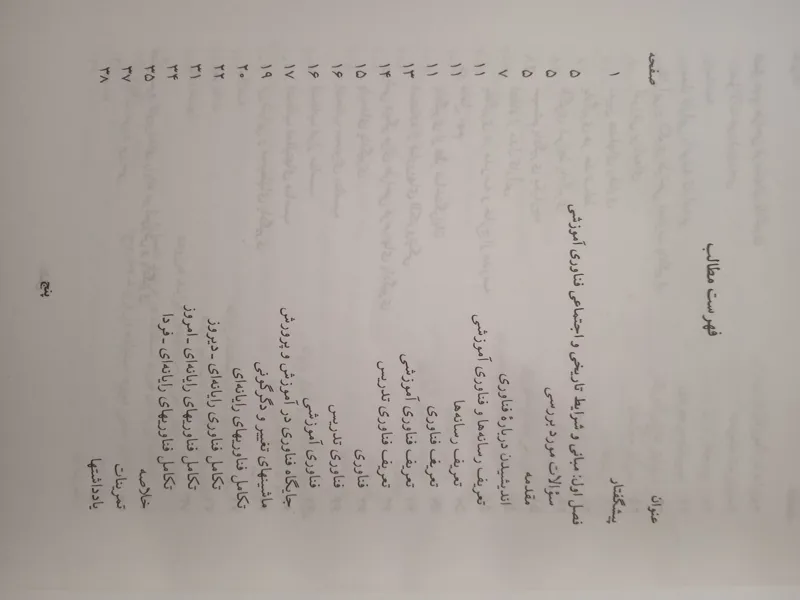 فهرست مطالب
عنوان صفحه
پیشگفتار ۱
فصل اول: مبانی و شرایط تاریخی و اجتماعی فناوری آموزشی ۵
سؤالات مورد بررسی ۵
مقدمه ۵
اندیشیدن دربارهٔ فناوری ۷
تعریف رسانه‌ها و فناوری آموزشی ۱۱
تعریف رسانه‌ها ۱۱
تعریف فناوری ۱۱
تعریف فناوری آموزشی ۱۳
تعریف فناوری تدریس ۱۴
فناوری ۱۵
فناوری تدریس ۱۶
فناوری آموزشی ۱۶
جایگاه فناوری در آموزش و پرورش ۱۷
ماشینهای تغییر و دگرگونی ۱۹
تکامل فناوریهای رایانه‌ای ۲۰
تکامل فناوری رایانه‌ای ـ دیروز ۲۲
تکامل فناوریهای رایانه‌ای ـ امروز ۳۱
تکامل فناوریهای رایانه‌ای ـ فردا ۳۴
خلاصه ۳۵
تمرینات ۳۷
یادداشتها ۳۸
پنج